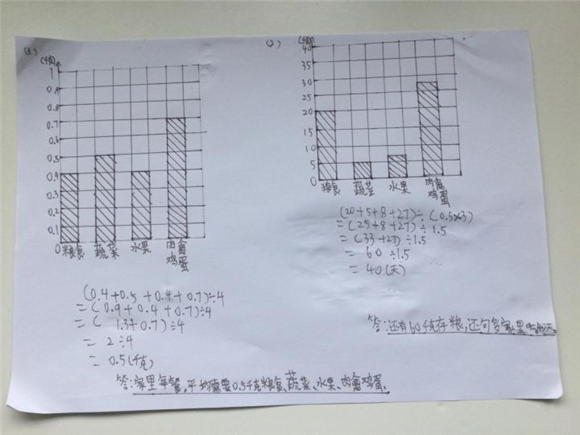 (千克)
1
0.9
0.8
0.7
0.6
0.5
0.4
0.3
0.2
0.1
0
粮食 蔬菜 水果 肉禽鸡蛋
(0.4+0.5+0.4+0.7)÷4
=(0.9+0.4+0.7)÷4
=(1.3+0.7)÷4
=2÷4
=0.5(千克)
答:家里每餐,平均需要0.5千克粮食、蔬菜、水果、肉禽鸡蛋。
(千克)
40
35
30
25
20
15
10
5
0
粮食 蔬菜 水果 肉禽鸡蛋
(20+5+8+27)÷(0.5×3)
=(25+8+27)÷1.5
=(33+27)÷1.5
=60÷1.5
=40(天)
答:还有60千克存粮,还够多家里